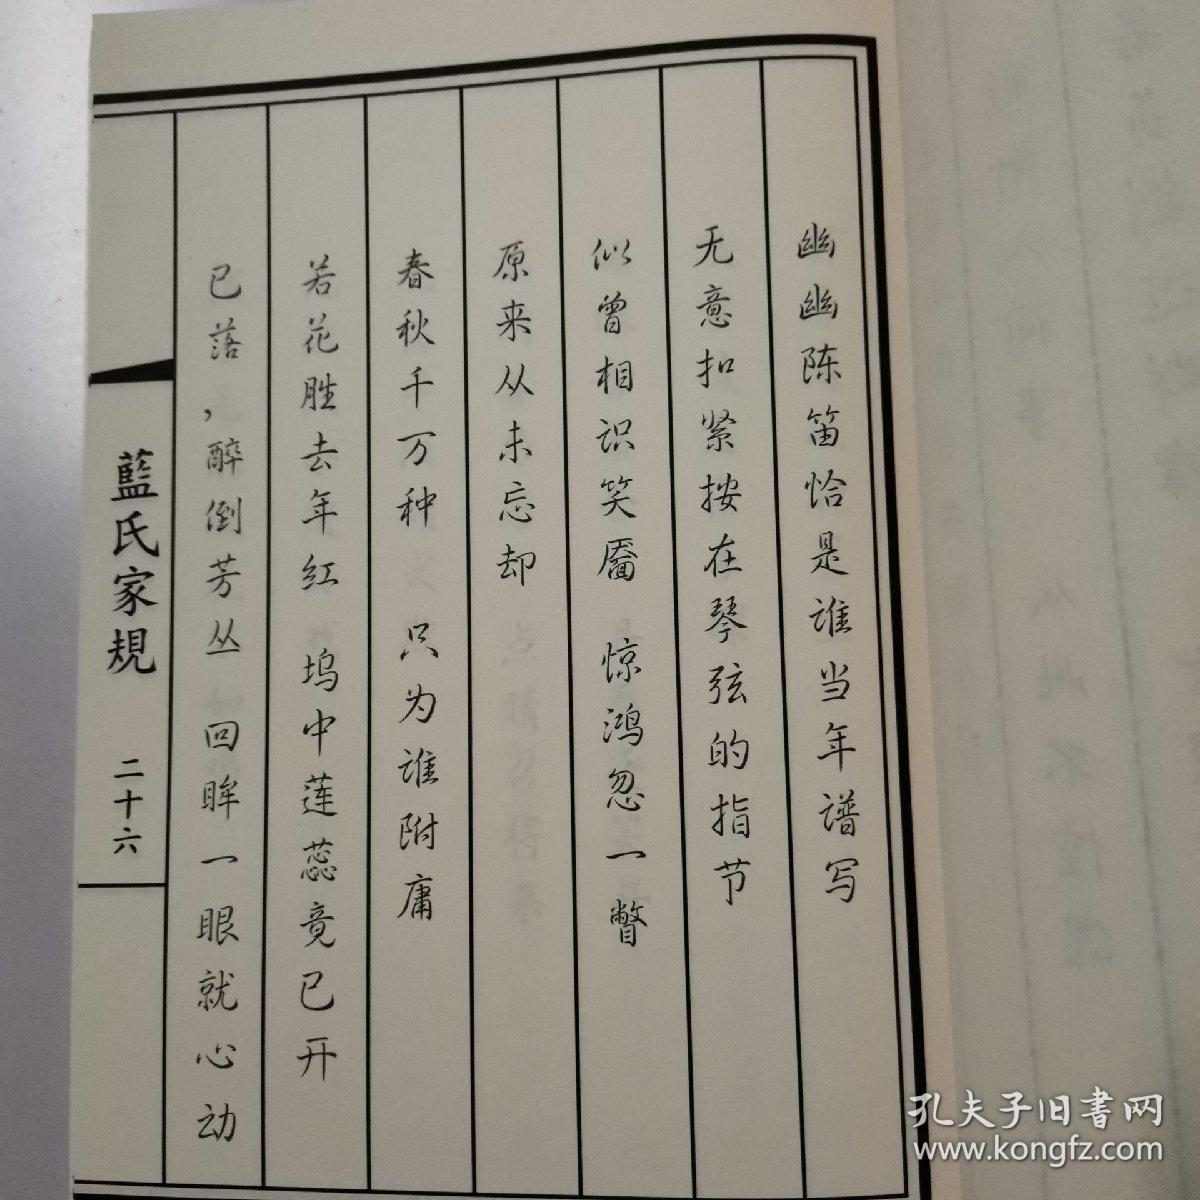 幽幽陈笛恰是谁当年谱写
无意扣紧按在琴弦的指节
似曾相识笑靥 惊鸿忽一瞥
原来从未忘却
春秋千万种 只为谁附庸
若花胜去年红 坞中莲蕊竟已开
已落,醉倒芳丛 回眸一眼就心动
藍氏家規
二十六
孔夫子旧书网
www.kongfz.com